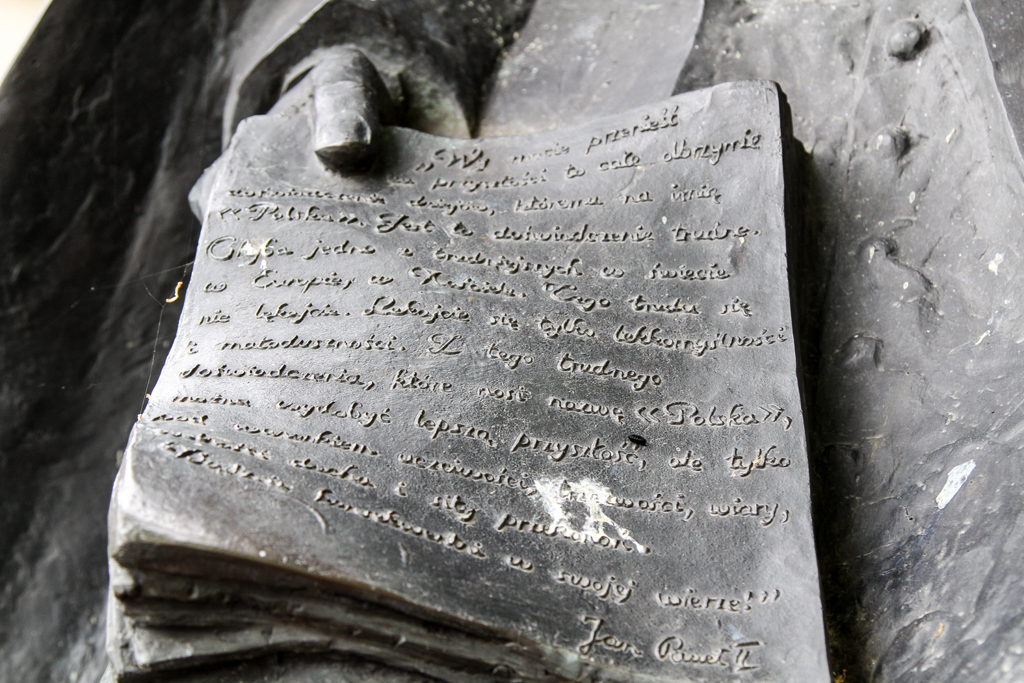 „Wy macie przenieść
ku przyszłości to całe olbrzymie
doświadczenie dziejów, któremu na imię
«Polska». Jest to doświadczenie trudne.
Chyba jedno z trudniejszych w świecie
w Europie, w Kościele. Tego trudu się
nie lękajcie. Lękajcie się tylko lekkomyślności
i małoduszności. Z tego trudnego
doświadczenia, które nosi nazwę «Polska»,
można wydobyć lepszą przyszłość, ale tylko
pod warunkiem uczciwości, trzeźwości, wiary,
wolności ducha i siły przekonań.
Bądźcie konsekwentni w swojej wierze!”
Jan Paweł II